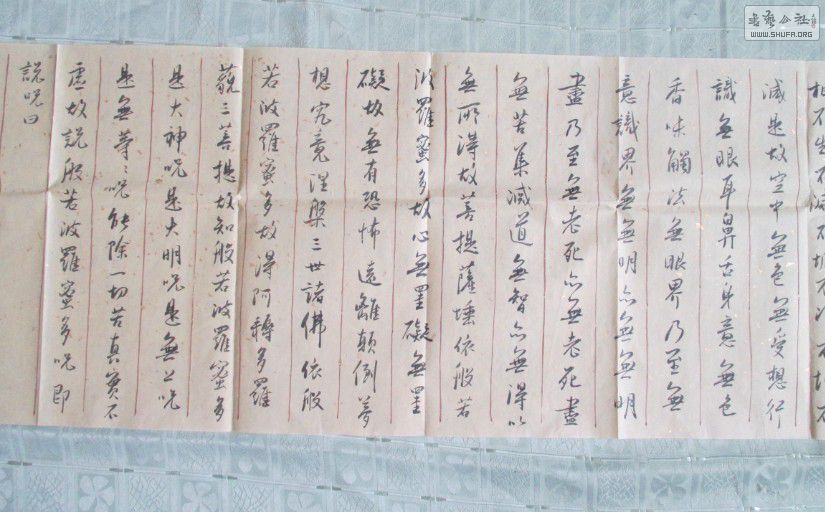 相不生不滅不垢不淨不增不
減是故空中無色無受想行
識無眼耳鼻舌身意無色
香味觸法無眼界乃至無
意識界無無明亦無無明
盡乃至無老死亦無老死盡
無苦集滅道無智亦無得以
無所得故菩提薩埵依般若
波羅蜜多故心無罣礙無罣
礙故無有恐怖遠離顛倒夢
想究竟涅槃三世諸佛依般
若波羅蜜多故得阿耨多羅
藐三菩提故知般若波羅蜜多
是大神呪是大明呪是無上呪
是無等々呪能除一切苦真實不
虛故說般若波羅蜜多呪即
說呪曰
書藝公社
WWW.SHUFA.ORG